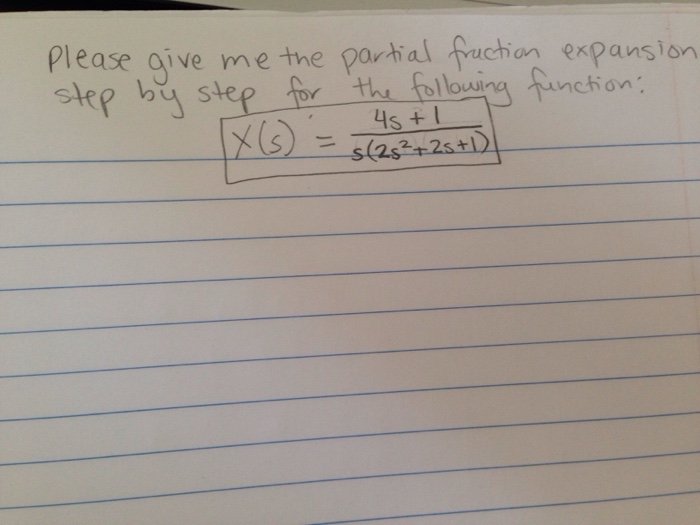 please give me the partial fraction expansion
step by step for the following function:
X(s) = 4s + 1
s(2s²+2s+1)